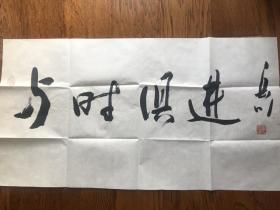 与时俱进